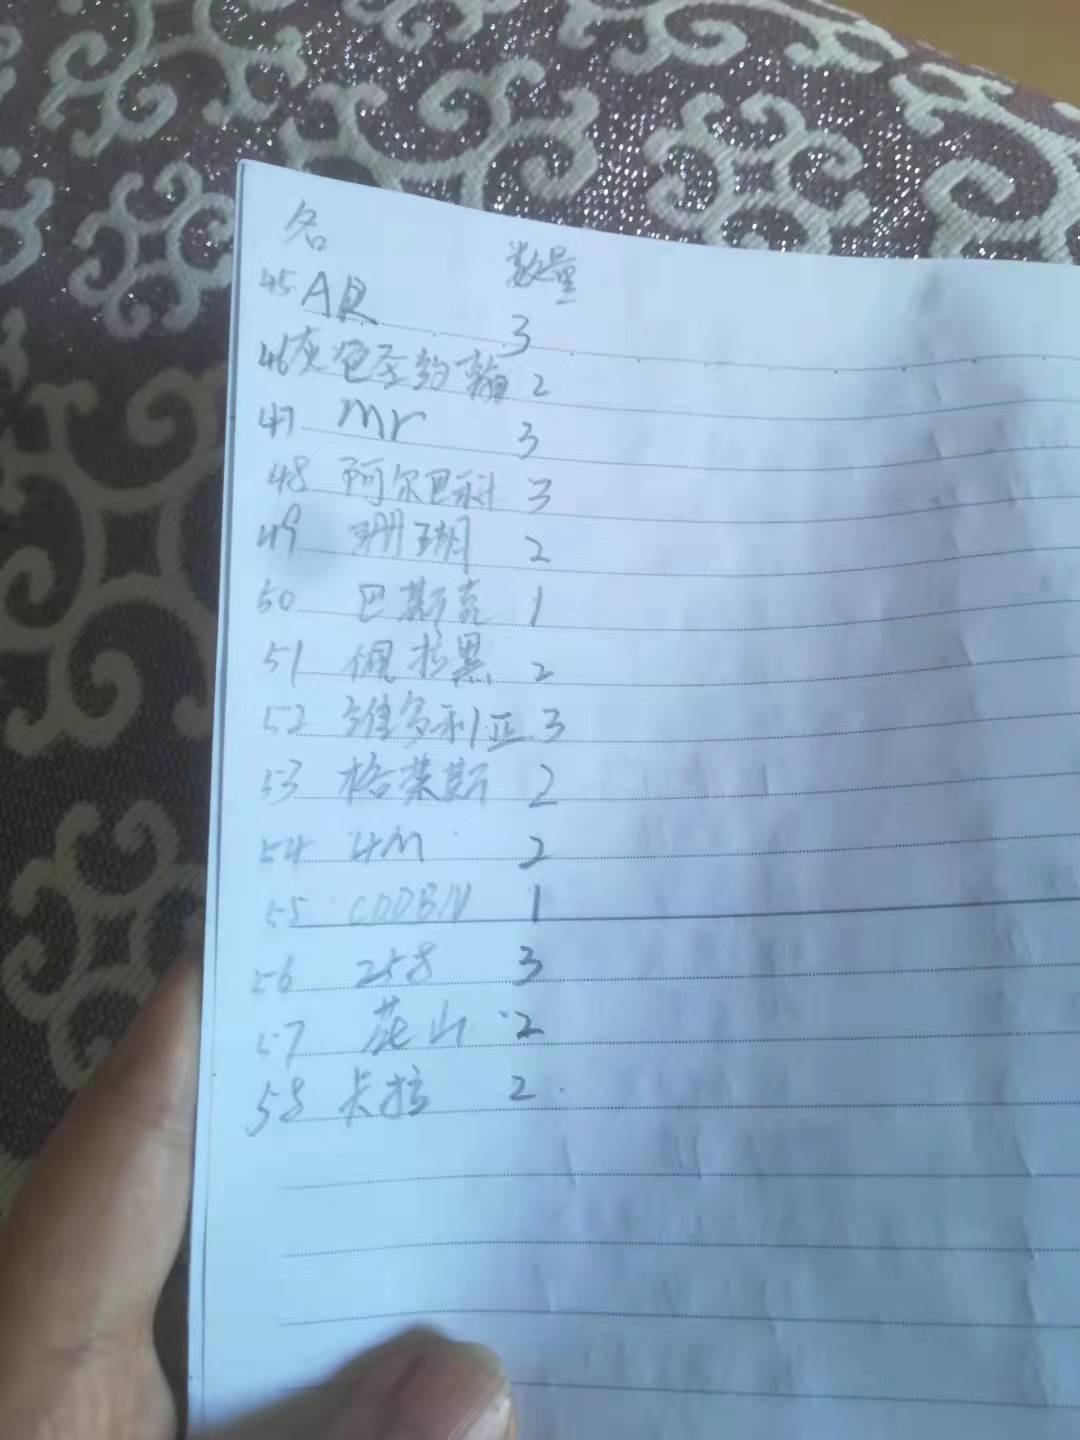 名 数量
45 AR 3
46 灰色圣约翰 2
47 mr 3
48 阿尔巴科 3
49 珊瑚 2
50 巴斯克 1
51 佩拉黑 2
52 维多利亚 3
53 格莱斯 2
54 4M 2
55 1
56 258 3
57 山 2
58 卡拉 2